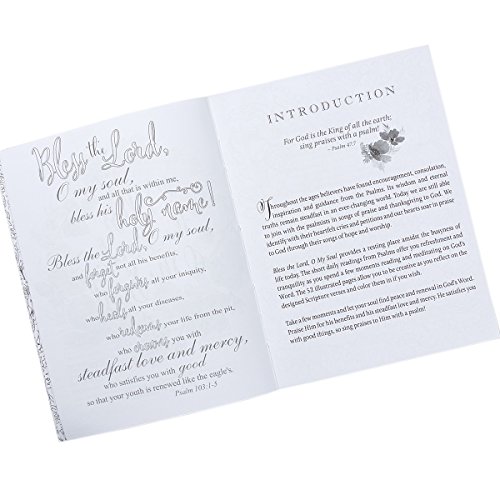 Bless the Lord,
O my soul,
and all that is within me,
bless his holy name!
Bless the Lord, O my soul,
and forget not all his benefits,
who forgives all your iniquity,
who heals all your diseases,
who redeems your life from the pit,
who crowns you with
steadfast love and mercy,
who satisfies you with good
so that your youth is renewed like the eagle's.
Psalm 103:1-5
INTRODUCTION
For God is the King of all the earth;
sing praises with a psalm!
~ Psalm 47:7
Throughout the ages believers have found encouragement, consolation,
inspiration and guidance from the Psalms. Its wisdom and eternal
truths remain steadfast in an ever changing world. Today we are still able
to join with the psalmists in songs of praise and thanksgiving to God. We
identify with their heartfelt cries and petitions and our hearts soar in praise
to God through their songs of hope and worship.
Bless the Lord, O My Soul provides a resting place amidst the busyness of
life today. The short daily readings from Psalms offer you refreshment and
tranquility as you spend a few moments reading and meditating on God's
Word. The 52 illustrated pages allow you to be creative as you reflect on the
designed Scripture verses and color them in if you wish.
Take a few moments and let your soul find peace and renewal in God's Word.
Praise Him for his benefits and his steadfast love and mercy. He satisfies you
with good things, so sing praises to Him with a psalm!